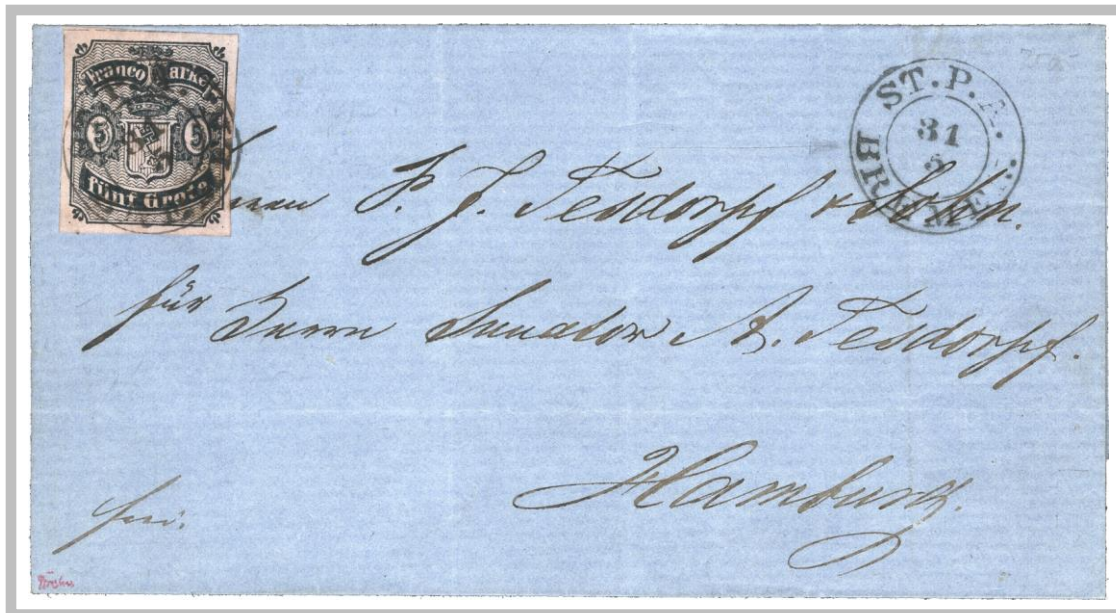 Franco Marke
5 5
fünf Grote
ST.P.A.
31
5
BREMEN
Herrn P. J. Tesdorpf & Sohn.
für Herrn Senator A. Tesdorpf.
Hamburg.
frei.